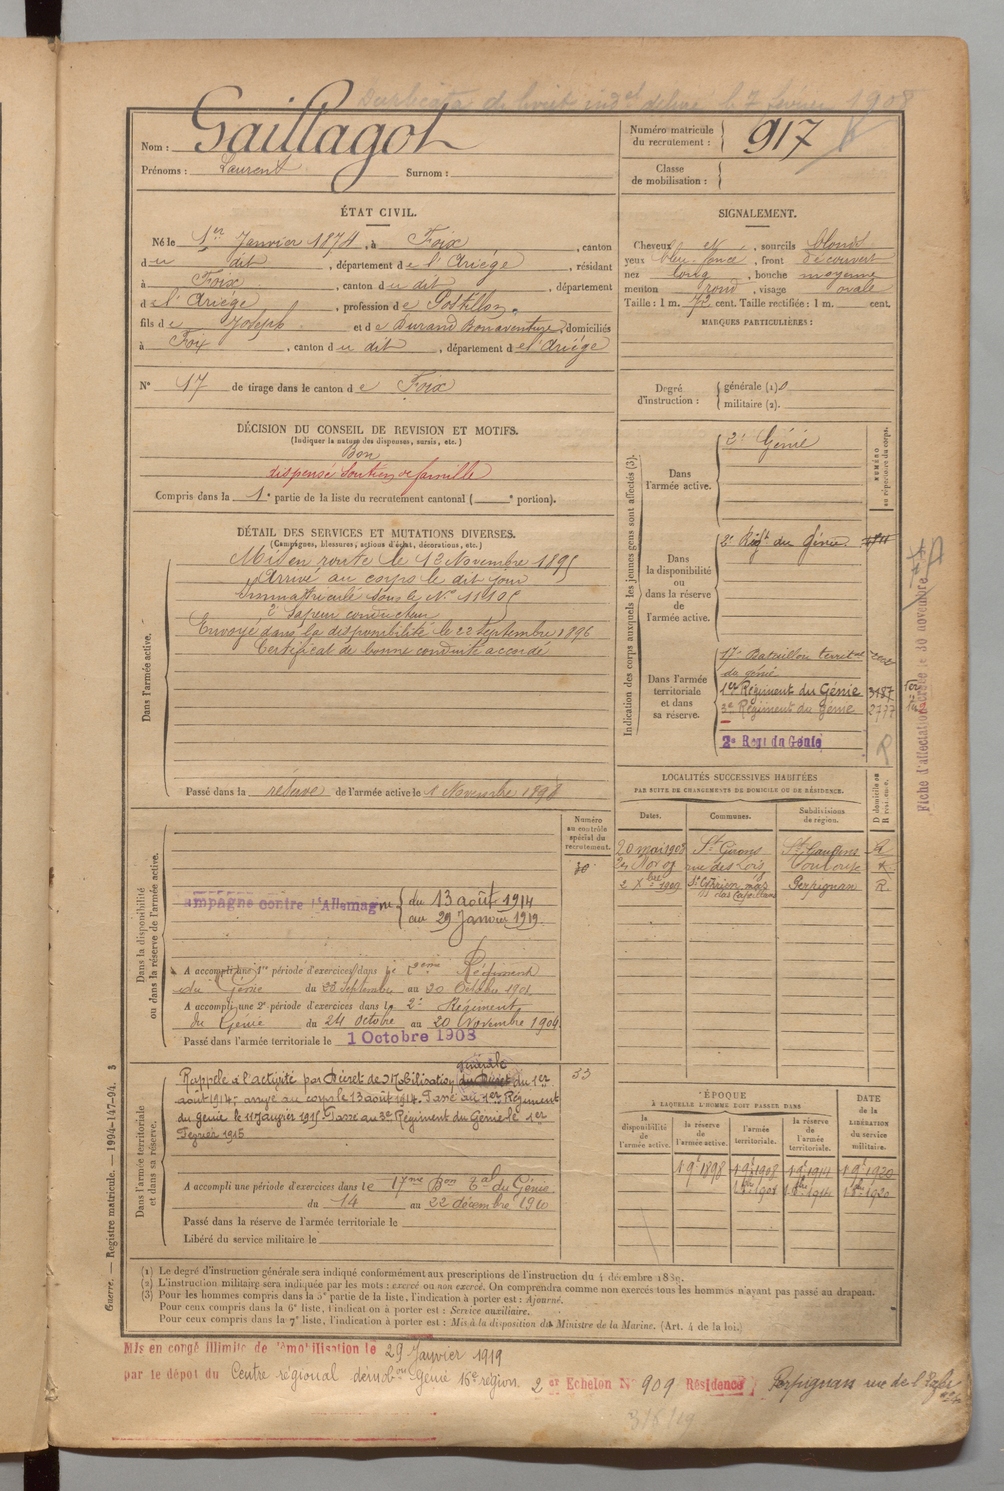 Duplicata de livret indel délivré le 7 février 1908
Nom : Gaillagot
Prénoms : Laurent Surnom :
Numéro matricule du recrutement : 917
Classe de mobilisation :
ÉTAT CIVIL.
Né le 1er Janvier 1874, à Foix, canton
du dit, département de l'Ariége, résidant
à Foix, canton du dit, département
de l'Ariége, profession de Postillon
fils de Joseph et de Durand Bonaventure, domiciliés
à Foix, canton du dit, département de l'Ariége
N° 17 de tirage dans le canton de Foix
SIGNALEMENT.
Cheveux N, sourcils blonds
yeux bleu-foncé, front découvert
nez long, bouche moyenne
menton rond, visage ovale
Taille : 1 m. 72 cent. Taille rectifiée : 1 m. cent.
MARQUES PARTICULIÈRES :
Degré d'instruction : générale (1) 0
militaire (2).
DÉCISION DU CONSEIL DE REVISION ET MOTIFS.
(Indiquer la nature des dispenses, sursis, etc.)
Bon
dispensé Soutien de famille
Compris dans la 1e partie de la liste du recrutement cantonal ( e portion).
DÉTAIL DES SERVICES ET MUTATIONS DIVERSES.
(Campagnes, blessures, actions d'éclat, décorations, etc.)
Dans l'armée active.
Mis en route le 13 Novembre 1895
Arrivé au corps le dit jour
Immatriculé sous le N° 11105
2e Sapeur conducteur
Envoyé dans la disponibilité le 22 Septembre 1896
Certificat de bonne conduite accordé
Passé dans la réserve de l'armée active le 1 Novembre 1898
Indication des corps auxquels les jeunes gens sont affectés (3).
NUMÉRO au répertoire du corps.
Dans l'armée active.
2e Génie
Dans la disponibilité ou dans la réserve de l'armée active.
2e Régt du Génie
Dans l'armée territoriale et dans sa réserve.
17e Bataillon territal
du génie
1er Régiment du Génie 3187
3e Régiment du Génie 2777
2e Regt du Génie R
Fiche d'affectation créée le 30 novembre
LOCALITÉS SUCCESSIVES HABITÉES
PAR SUITE DE CHANGEMENTS DE DOMICILE OU DE RÉSIDENCE.
Dates. Communes. Subdivisions de région. D domicile ou R résidence.
20 mai 1905 St Girons St Gaudens R
rue des Lois Toulouse R
2 Xbre 1909 Perpignan R
Numéro au contrôle spécial du recrutement.
Dans la disponibilité ou dans la réserve de l'armée active.
ampagne contre l'Allemagne du 13 août 1914
au 29 Janvier 1919
A accompli une 1re période d'exercices dans le 2ème Régiment
du Génie du 23 Septembre au 20 Octobre 1901
A accompli une 2e période d'exercices dans le 2e Régiment
du Génie du 24 octobre au 20 Novembre 1904
Passé dans l'armée territoriale le 1 Octobre 1908
Dans l'armée territoriale et dans sa réserve.
53
générale
Rappelé à l'activité par Décret de Mobilisation du Décret du 1er
août 1914. arrivé au corps le 13 août 1914. Passé au 1er Régiment
du Génie le 11 Janvier 1915 Passé au 3e Régiment du Génie le 1er
Février 1915
A accompli une période d'exercices dans le 17me Bon Tal du Génie
du 14 au 22 décembre 1910
Passé dans la réserve de l'armée territoriale le
Libéré du service militaire le
ÉPOQUE
À LAQUELLE L'HOMME DOIT PASSER DANS
la disponibilité de l'armée active. la réserve de l'armée active. l'armée territoriale. la réserve de l'armée territoriale.
DATE de la LIBÉRATION du service militaire.
(1) Le degré d'instruction générale sera indiqué conformément aux prescriptions de l'instruction du 4 décembre 1889.
(2) L'instruction militaire sera indiquée par les mots : exercé ou non exercé. On comprendra comme non exercés tous les hommes n'ayant pas passé au drapeau.
(3) Pour les hommes compris dans la 5e partie de la liste, l'indication à porter est : Ajourné.
Pour ceux compris dans la 6e liste, l'indication à porter est : Service auxiliaire.
Pour ceux compris dans la 7e liste, l'indication à porter est : Mis à la disposition du Ministre de la Marine. (Art. 4 de la loi.)
Guerre. — Registre matricule. — 1994-147-94. 5
Mis en congé illimité de démobilisation le 29 Janvier 1919
par le dépôt du Centre régional démobon Génie 16e région 2e Echelon N° 909 Résidence Perpignan rue de l'